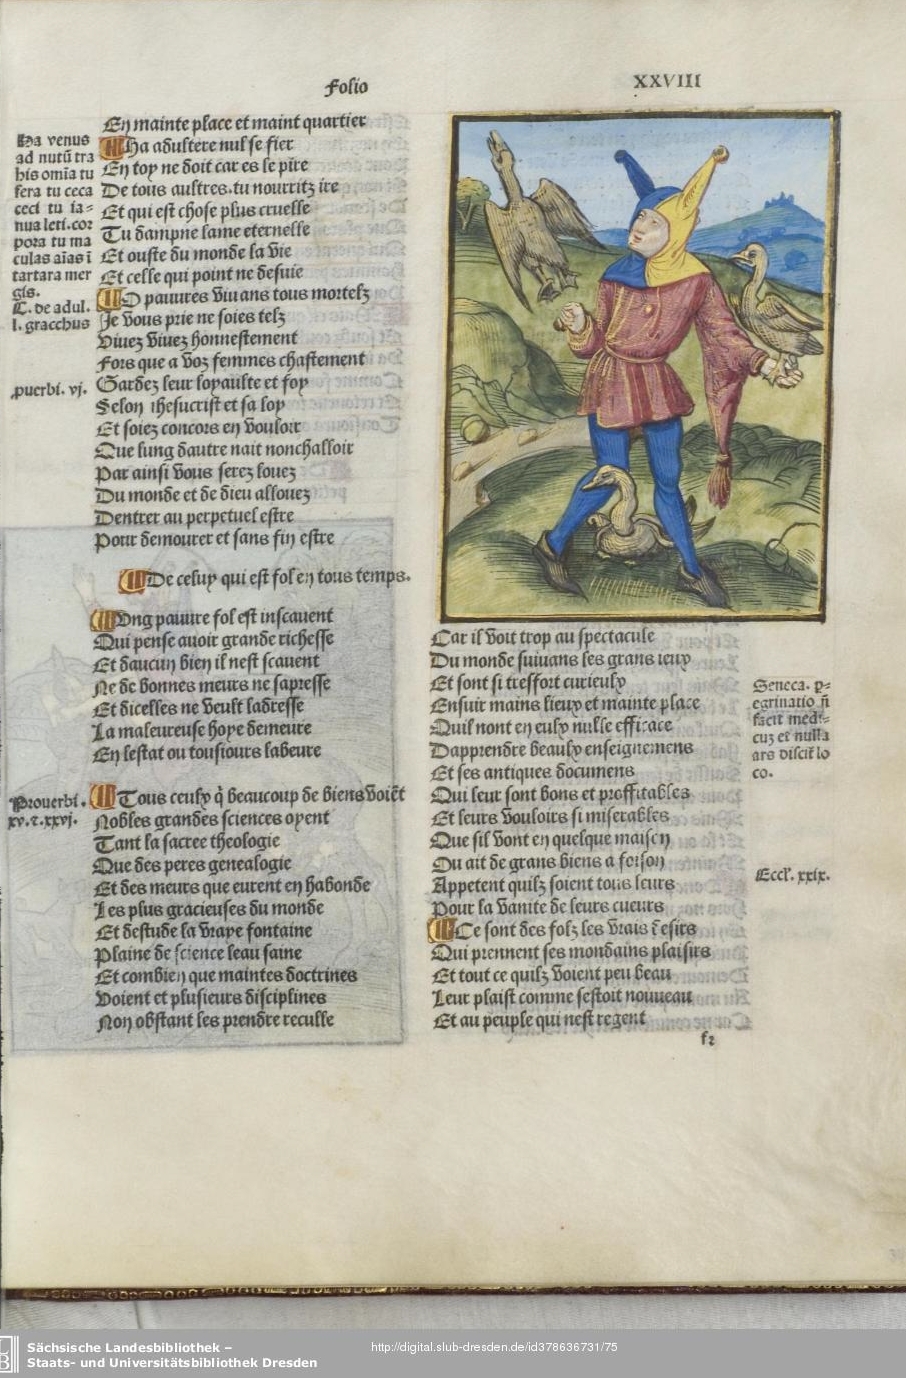 Folio
XXVIII
Ha venus
ad nutū tra
his omīa tu
fera tu ceca
ceci tu ia-
nua leti. cor
pora tu ma
culas aīas ī
tartara mer
gis.
C. de adul.
l. gracchus
puerbi. vj.
Prouerbi.
xv. ⁊. xxvj.
En mainte place et maint quartier
Ha adultere nul se fier
En toy ne doit car es le pire
De tous aultres. tu nourritz ire
Et qui est chose plus cruelle
Tu dampne lame eternelle
Et ouste du monde la vie
Et celle qui point ne desuie
O pauures viuans tous mortelz
Je vous prie ne soies telz
Viuez viuez honnestement
Fors que a voz femmes chastement
Gardez leur loyaulte et foy
Selon ihesucrist et sa loy
Et soiez concors en vouloir
Que lung dautre nait nonchalloir
Par ainsi vous serez louez
Du monde et de dieu allouez
Dentrer au perpetuel estre
Pour demourer et sans fin estre
De celuy qui est fol en tous temps.
Ung pauure fol est inscauent
Qui pense auoir grande richesse
Et daucun bien il nest scauent
Ne de bonnes meurs ne sapresse
Et dicelles ne veult ladresse
La maleureuse hoye demeure
En lestat ou tousiours labeure
Tous ceulx q̄ beaucoup de biens voiēt
Nobles grandes sciences oyent
Tant la sacree theologie
Que des peres genealogie
Et des meurs que eurent en habonde
Les plus gracieuses du monde
Et destude la vraye fontaine
Plaine de science leau saine
Et combien que maintes doctrines
Voient et plusieurs disciplines
Non obstant les prendre reculle
Car il voit trop au spectacule
Du monde suiuans ses grans ieux
Et sont si treffort curieulx
Ensuir mains lieux et mainte place
Quil nont en eulx nulle efficace
Dapprendre beaulx enseignemens
Et ses antiques documens
Qui leur sont bons et proffitables
Et leurs vouloirs si miserables
Que sil vont en quelque maison
Ou ait de grans biens a foison
Appetent quilz soient tous leurs
Pour la vanite de leurs cueurs
Ce sont des folz les vrais ē esirs
Qui prennent ses mondains plaisirs
Et tout ce quilz voient peu beau
Leur plaist comme sestoit nouueau
Et au peuple qui nest regent
Seneca. p-
egrinatio ñ
facit medi-
cuz et nulla
ars discit lo
co.
Eccl'. xxix.
f2
Sächsische Landesbibliothek –
Staats- und Universitätsbibliothek Dresden
http://digital.slub-dresden.de/id378636731/75